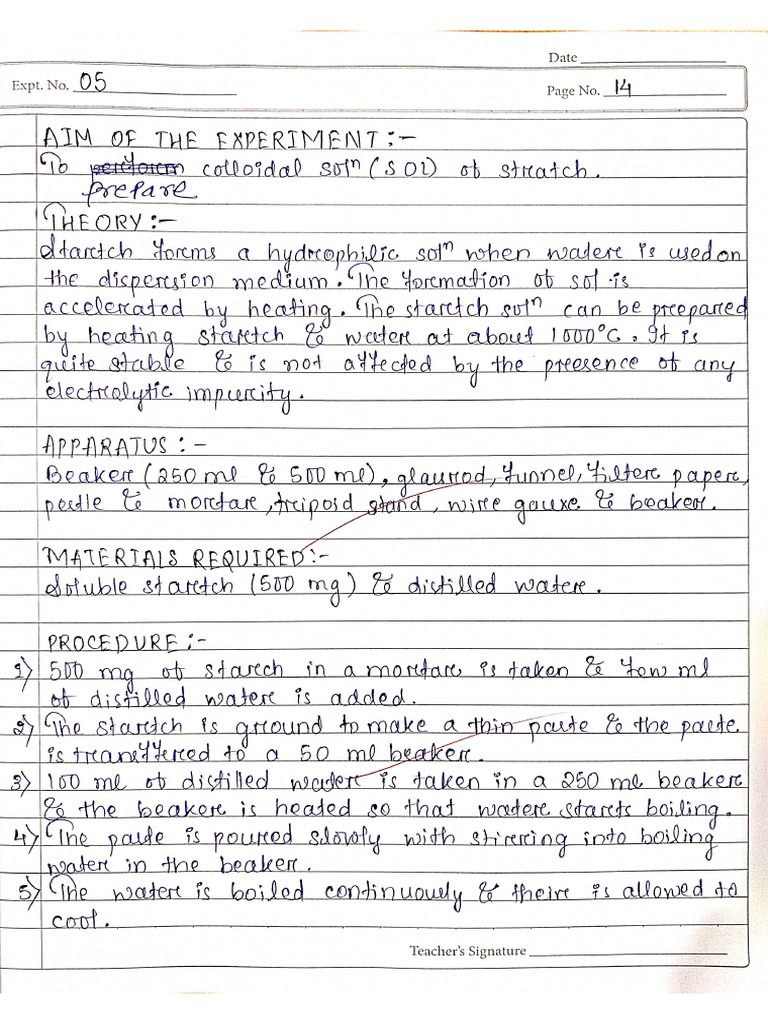 Date
Expt. No. 05
Page No. 14
AIM OF THE EXPERIMENT:-
To perform colloidal solⁿ (SOL) of stratch.
prepare
THEORY:-
Startch forms a hydrophilic solⁿ when water is used on
the dispersion medium. The formation of sol is
accelerated by heating. The startch solⁿ can be prepared
by heating startch & water at about 1000°C. It is
quite stable & is not affected by the presence of any
electrolytic impurity.
APPARATUS:-
Beaker (250 ml & 500 ml), glassrod, funnel, filter paper,
pestle & mortar, tripoid stand, wire gauxe & beaker.
MATERIALS REQUIRED:-
Soluble startch (500 mg) & distilled water.
PROCEDURE:-
1) 500 mg of starch in a mortar is taken & few ml
of distilled water is added.
2) The startch is ground to make a thin paste & the paste
is transffered to a 50 ml beaker.
3) 100 ml of distilled water is taken in a 250 ml beaker
& the beaker is heated so that water starts boiling.
4) The paste is poured slowly with stirring into boiling
water in the beaker.
5) The water is boiled continuously & their is allowed to
cool.
Teacher's Signature